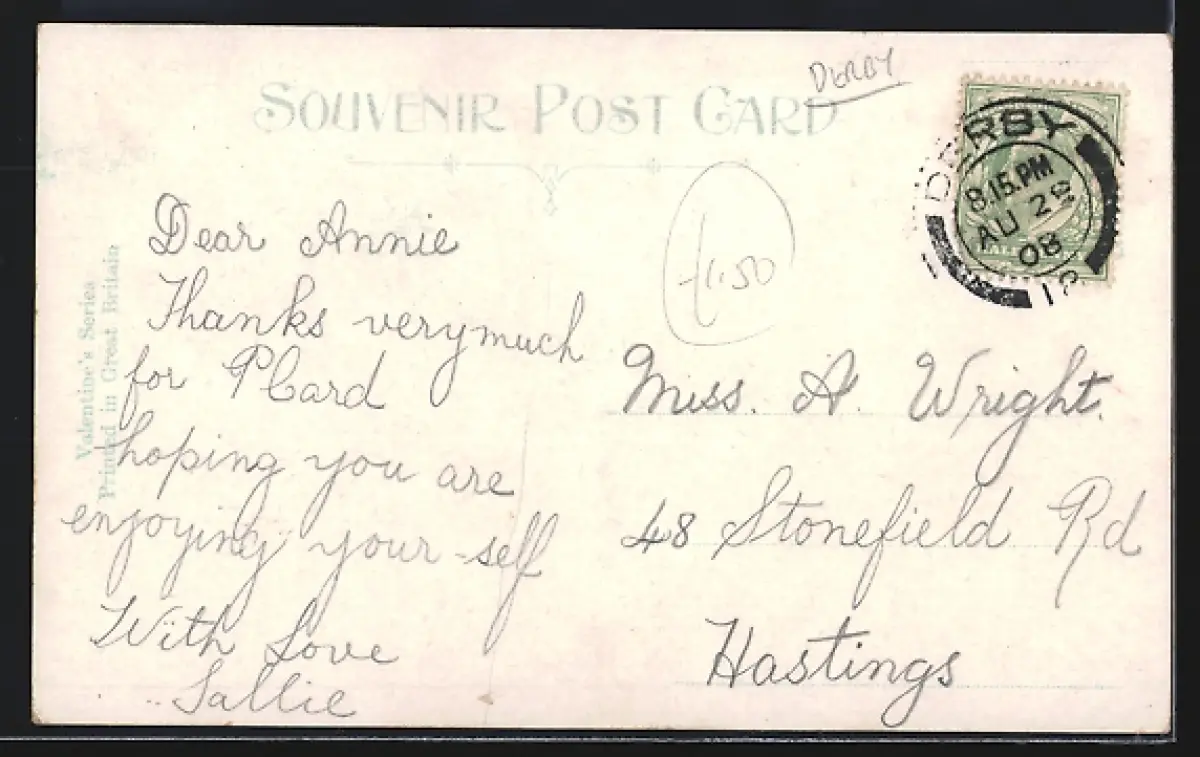 DERBY
SOUVENIR POST CARD
DERBY
8.15.PM
AU 29
08
12
£1.50
Valentine's Series
Printed in Great Britain
Dear Annie
Thanks very much
for PCard
hoping you are
enjoying your-self
With Love
Sallie
Miss. A. Wright.
48 Stonefield Rd
Hastings